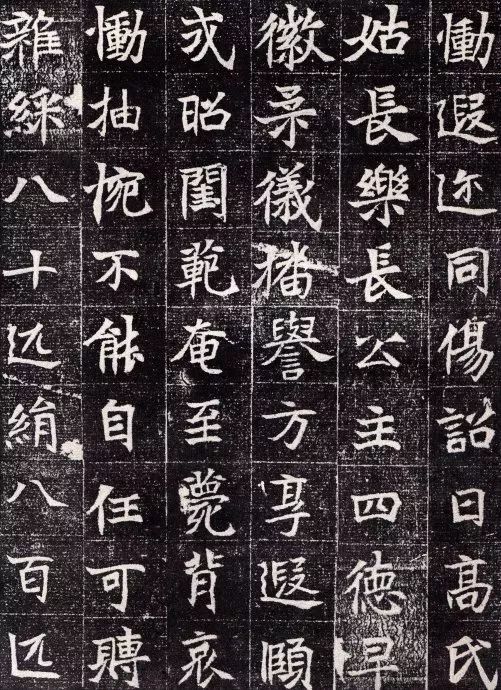 慟遐迩同傷詔曰高氏
姑長樂長公主四徳早
徽柔儀播譽方享遐頤
式昭閨範奄至薨背哀
慟抽惋不能自任可賻
雜綵八十匹絹八百匹